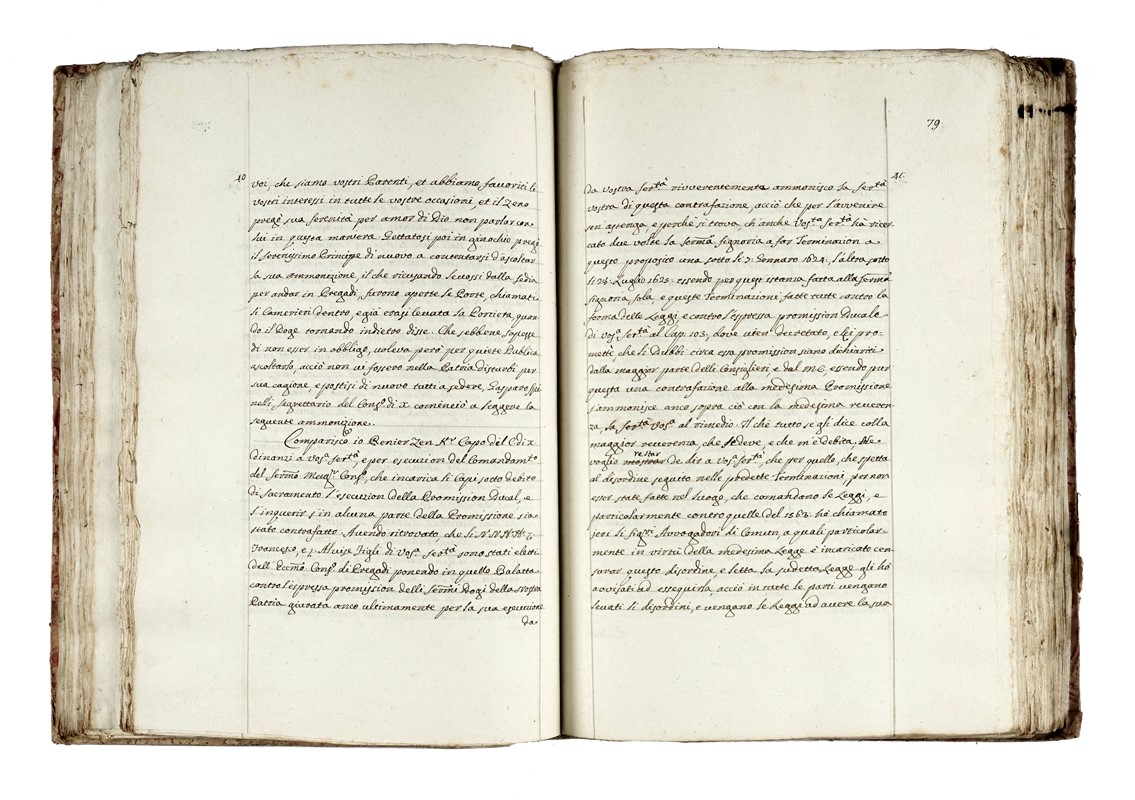 40
voi, che siamo vostri Parenti, et abbiamo favoriti li
vostri interessi in tutte le vostre occasioni, et il Zeno
pregò sua serenità per amor di Dio non parlar con
lui in questa maniera. Gettatosi poi in ginochio pregò
il serenissimo Principe di nuovo a contentarsi d'ascoltar
la sua ammonizione, il che ricusando levossi dalla sedia
per andar in Pregadi, furono aperte le Porte, chiamati
li Camerieri dentro, e già erasi levata la Portiera, quan-
do il Doge tornando indietro disse. Che sebbene sapesse
di non esser in obbligo, voleva però per quiete Publica
ascoltarlo, acciò non vi fossero nella Patria disturbi per
sua cagione, e postisi di nuovo tutti a sedere, Gasparo Spi
nelli segrettario del Conso. di X. cominciò a leggere la
seguente ammonizione.
Comparisco io Renier Zen Kr. Capo del C di X
dinanzi a Vosa. sertà, e per esecuzion del Comandamto.
del sermo Consº, che incarica li Capi sotto debito
di Sacramento l'esecuzion della Promission Ducal, e
l'inquerir s'in alcuna parte della Promissione sia
stato contrafatto. Avendo ritrovato, che li N.N.H.H. z
Francesco, e z Alvise Figli di Vosa. sertà sono stati eletti
dell' Eccmo. Consº. di Pregadi ponendo in quello Balatta
contro l'espressa promission delli sermi Dogi della Nostra
Patria giurata anco ultimamente per la sua esecuzione
da
79.
41.
da Vostra sertà riverentemente ammonisco la sertà
vostra di questa contrafazione, acciò che per l'avvenire
s'en astenga, e perchè si trova, ch'anche Vosa. sertà hà ricer-
cato due volte la serma signoria a far Terminazion a
questo proposito una sotto li 7: Gennaro 1624: l'altra sotto
li 28: Luglio 1625: essendo per quest' istanza fatta alla serma
signoria sola, e queste Terminazioni fatte tutte contro la
forma delle Leggi, e contro l'espressa promission Ducale
di Vosa. sertà al Cap. 103; dove vien decretato, e si pro-
mette, che li dubbi circa essa promission siano dichiariti
dalla maggior parte delli Consiglieri e dal M.C. essendo pur
questa una contrafazione alla medesima Promissione
s'ammonisce anco sopra ciò con la medesima reveren-
za, la sertà vosa. al rimedio. Il che tutto se gli dice colla
maggior reverenza, che si deve, e che m'è debita. Ne
voglio restar de dir a Vosa. sertà, che per quello, che spetta
al disordine seguito nelle predette Terminazioni, per non
esser state fatte nel luogo, che comandano le Leggi, e
particolarmente contro quelle del 1563: hò chiamato
jeri li sigri. Avvogadori di Comun, a quali particolar-
mente in virtù della medesima Legge è incaricato cen-
surar questo disordine, e letta la sudetta Legge gli hò
avvisati ad esseguirla, acciò in tutte le parti vengano
levati li disordini, e vengano le Leggi ad avere la sua